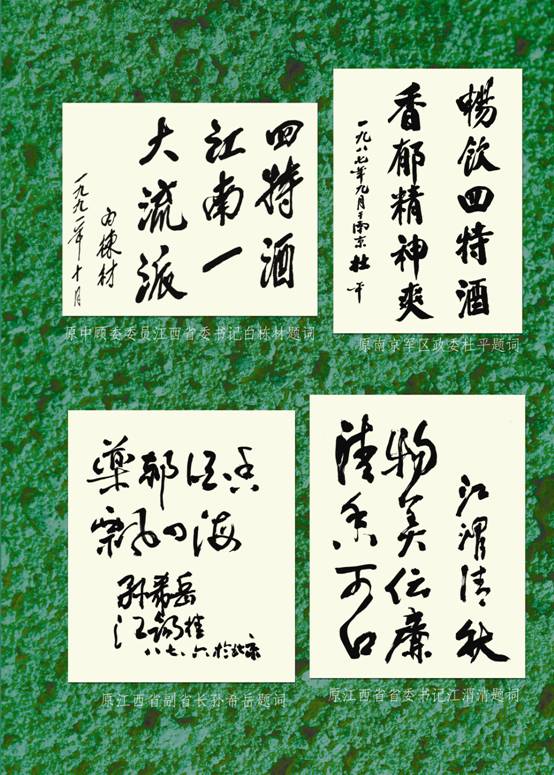 四特酒
江南一
大流派
白栋材
一九九一年十月
原中顾委委员江西省委书记白栋材题词
暢饮四特酒
香郁精神爽
一九八七年九月于南京 杜平
原南京军区政委杜平题词
藥都酒香
飘四海
孙希岳
八七、六於北京
原江西省副省长孙希岳题词
清香可口
物美价廉
江渭清
原江西省省委书记江渭清题词